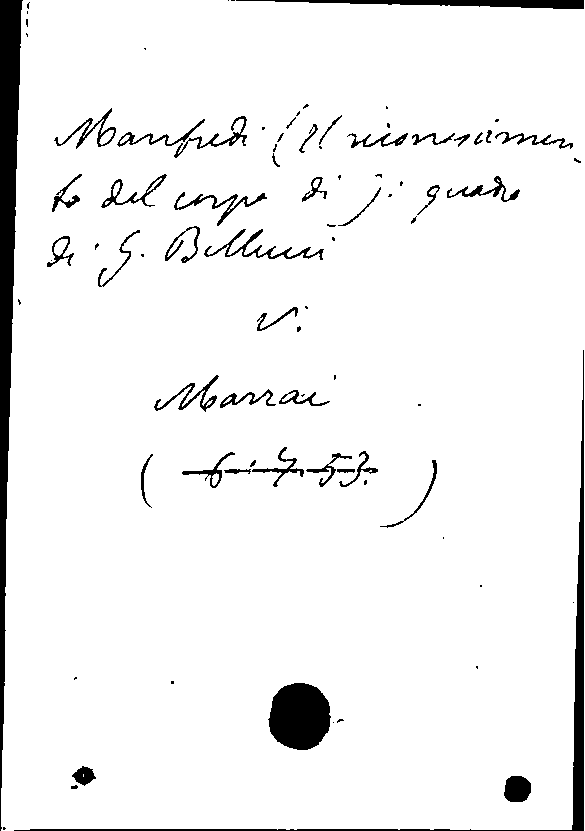 Manfredi (Il riconoscimen-
to del corpo di ): quadro
di G. Bellucci
v.
Marrai
( 6. 7. 53. )